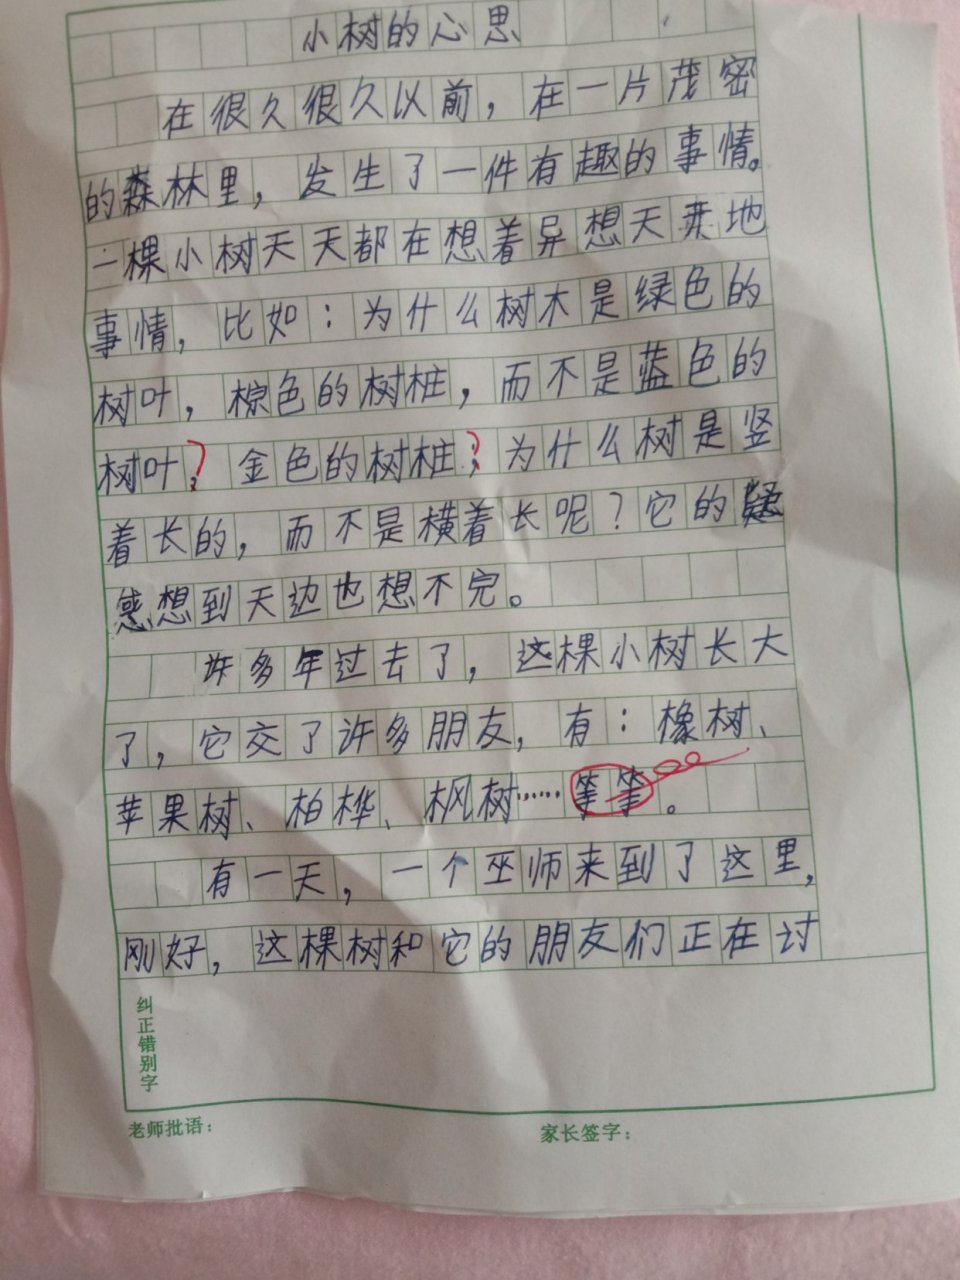 小树的心思
在很久很久以前，在一片茂密
的森林里，发生了一件有趣的事情。
一棵小树天天都在想着异想天开地
事情，比如：为什么树木是绿色的
树叶，棕色的树桩，而不是蓝色的
树叶？金色的树桩；为什么树是竖
着长的，而不是横着长呢？它的疑
惑想到天边也想不完。
许多年过去了，这棵小树长大
了，它交了许多朋友，有：橡树、
苹果树、柏桦、枫树……等等。
有一天，一个巫师来到了这里，
刚好，这棵树和它的朋友们正在讨
纠正错别字
老师批语：
家长签字：